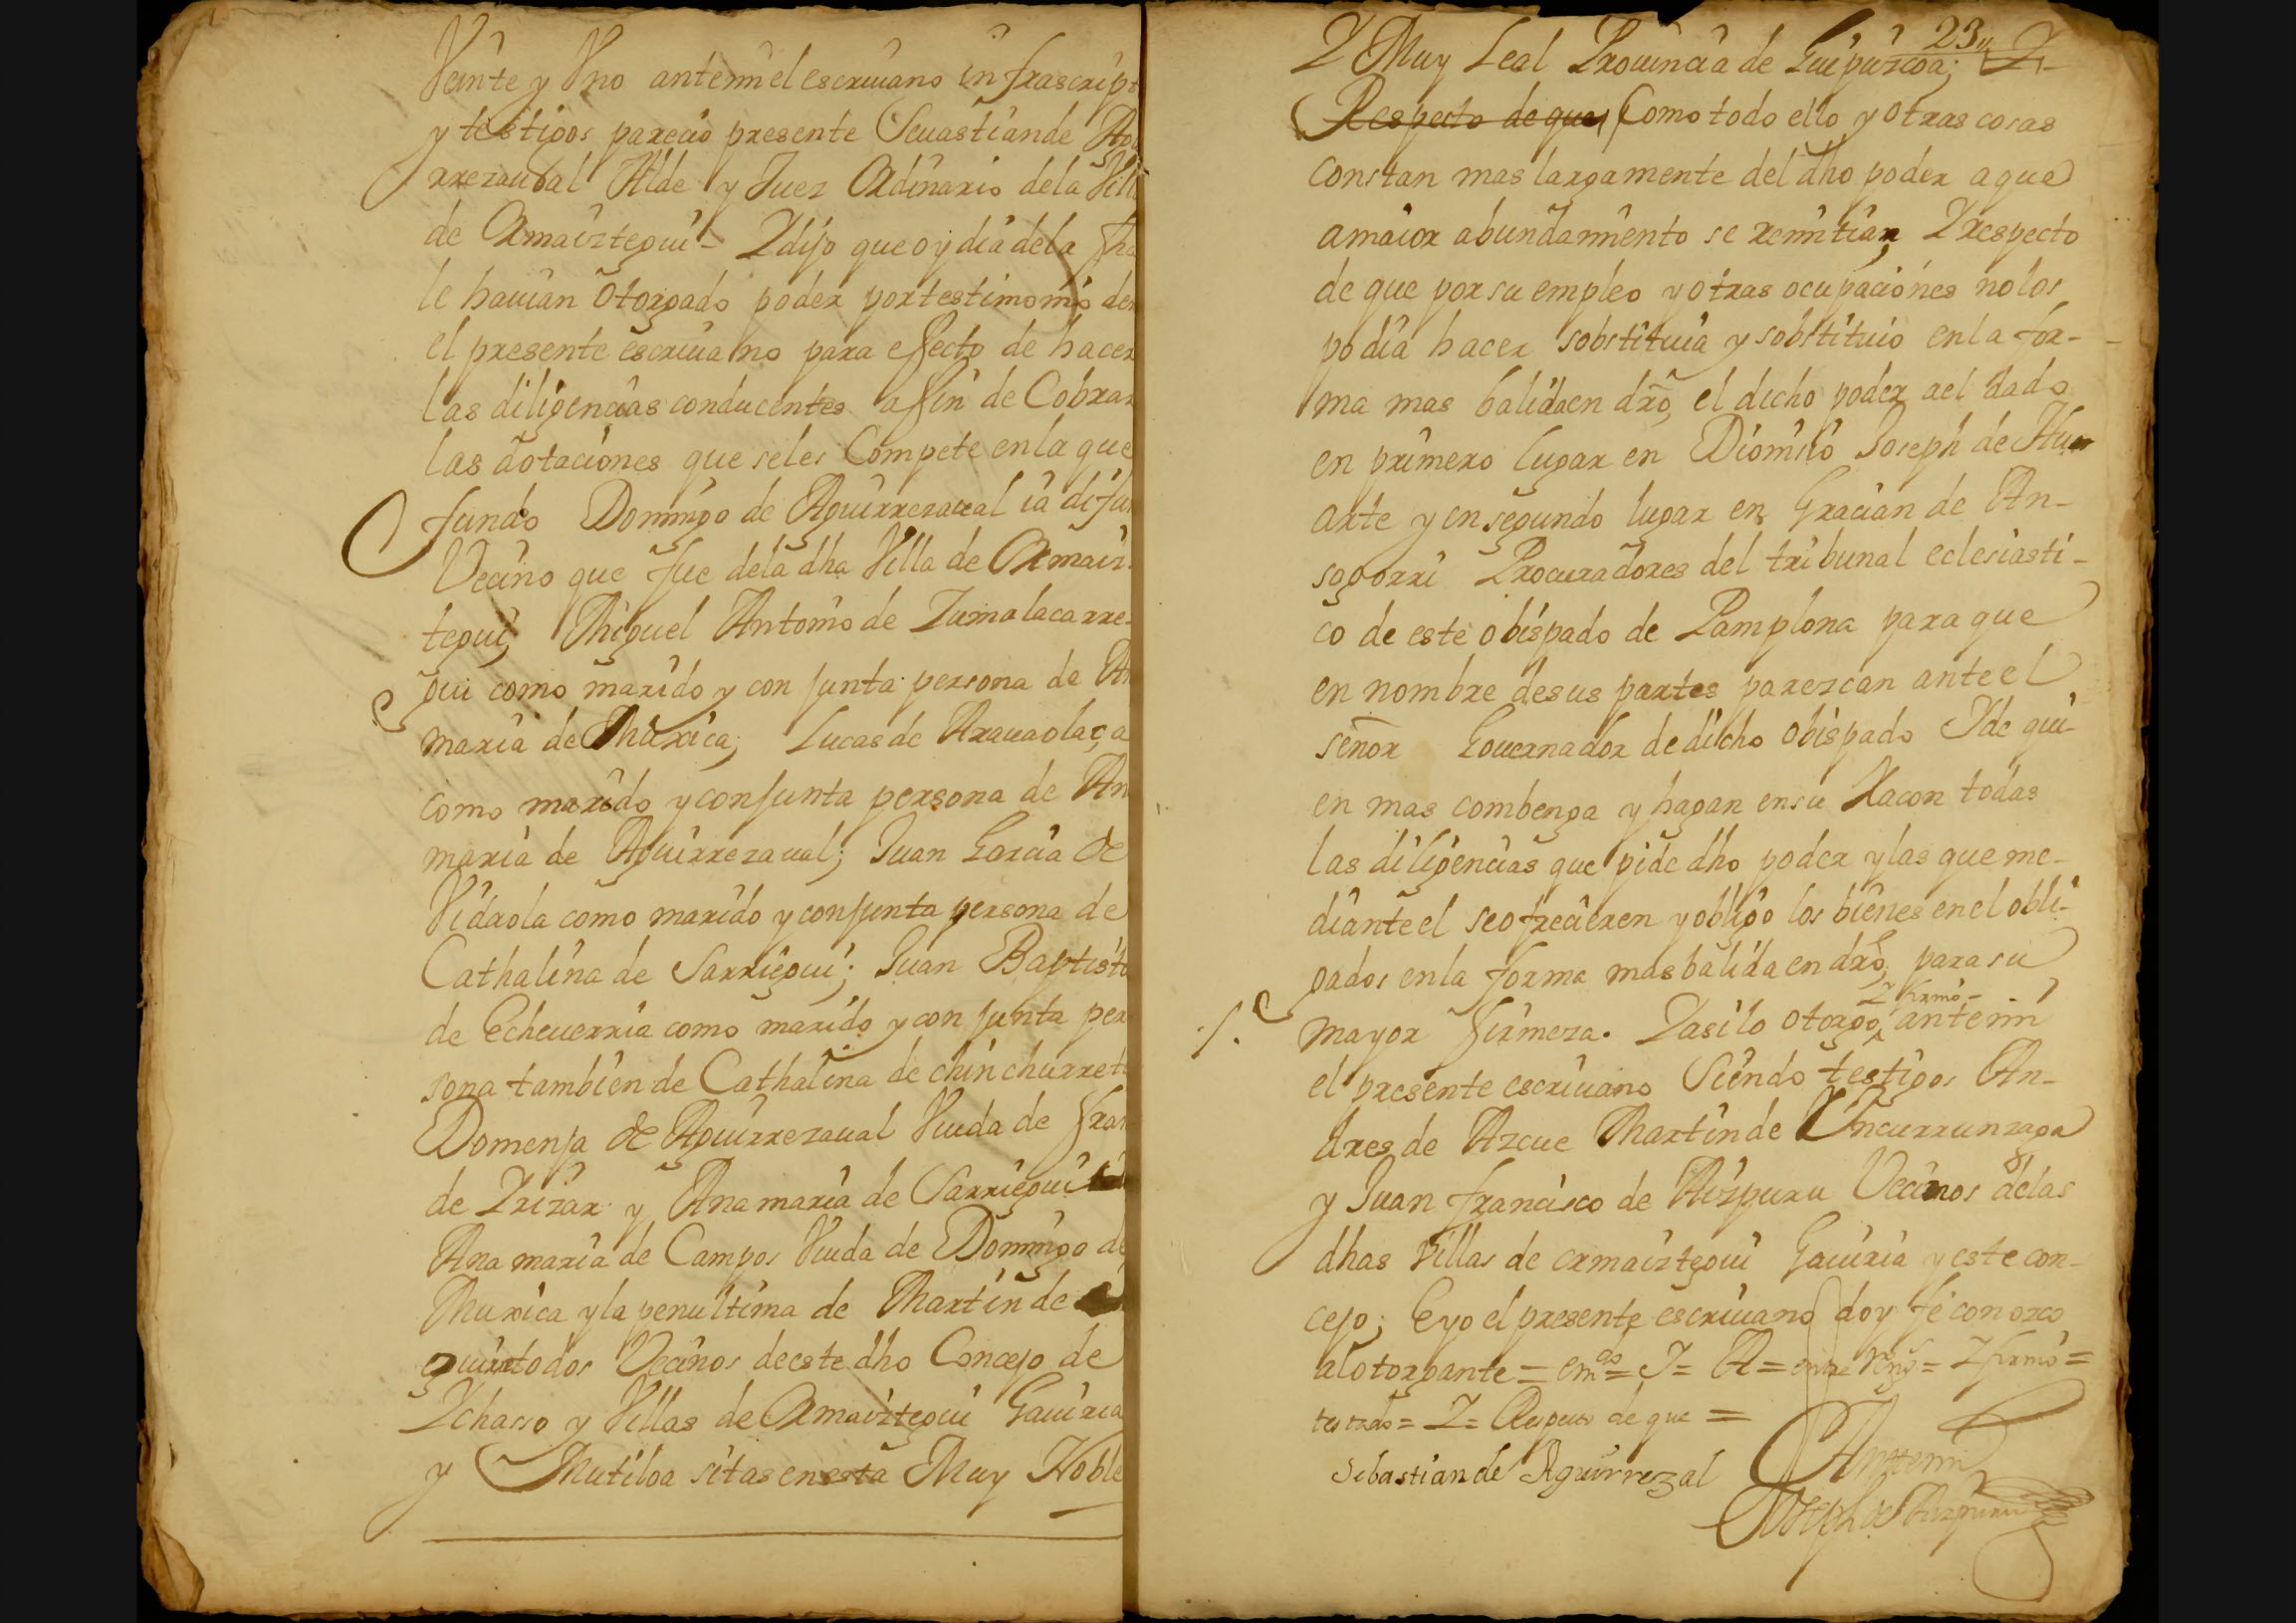 Veinte y Vno antemi el escriuano infrascripto
y testigos parecio presente Seuastian de Agui
rrezaual Alde y Juez Ordinario dela Villa
de Ormaiztegui - Y dijo que oy dia dela fha
le hauian otorgado poder por testimonio de mi
el presente escriuano para efecto de hacer
las diligencias conducentes a fin de Cobrar
las dotaciones que seles Compete en la que
fundo Domingo de Aguirrezaual ia difun
Vecino que fue dela dha Villa de Ormaiz-
tegui; Miguel Antonio de Zumalacarre-
gui como marido y conjunta persona de An
maria de Muxica; Lucas de Arauaolaça
como marido y conjunta persona de Ana
maria de Aguirrezaual; Juan Garcia de
Vidaola como marido y conjunta persona de
Cathalina de Sarriegui; Juan Baptista
de Echeuerria como marido y conjunta per
sona tambien de Cathalina de chinchurreta
Domenja de Aguirrezaual Viuda de fran
de Yrizar y Ana maria de Sarriegui
Ana maria de Campos Viuda de Domingo de
Muxica y la penultima de Martin de
todos Vecinos de este dho Concejo de
Ychasso y Villas de Ormaiztegui Gauiria
y Mutiloa sitas en esta Muy Noble
23
Y Muy Leal Prouincia de Guipuzcoa; Y
Respecto de que, Como todo ello y otras cosas
constan mas largamente del dho poder a que
a maior abundamiento se remitian, Y respecto
de que por su empleo y otras ocupaciones no los
podia hacer sobstituia y sobstituio en la for-
ma mas balida en dro, el dicho poder a el dado
en primero lugar en Dionisio Joseph de Hu
arte y en segundo lugar en Gracian de An-
sogorri Procuradores del tribunal eclesiasti-
co de este obispado de Pamplona para que
en nombre de sus partes parezcan ante el
señor Gouernador de dicho obispado Y de qui-
en mas combenga y hagan en su Racon todas
las diligencias que pide dho poder y las que me-
diante el se ofrecieren y obligo los bienes en el obli-
gados en la forma mas balida en dro, para su
mayor firmeza. Y asi lo otorgo, Y firmo - ante mi
el presente escriuano Siendo testigos An-
dres de Azcue Martin de Vncurrunzaga
y Juan francisco de Aizpuru Vecinos delas
dhas Villas de ormaiztegui Gauiria y este con-
cejo; E yo el presente escriuano doy fe conozco
al otorgante = emdo = J = A = entre Rengs = Y firmo =
testado = Y = Respecto de que =
Sebastian de Aguirrezal Ante mi
Joseph de Aizpuru